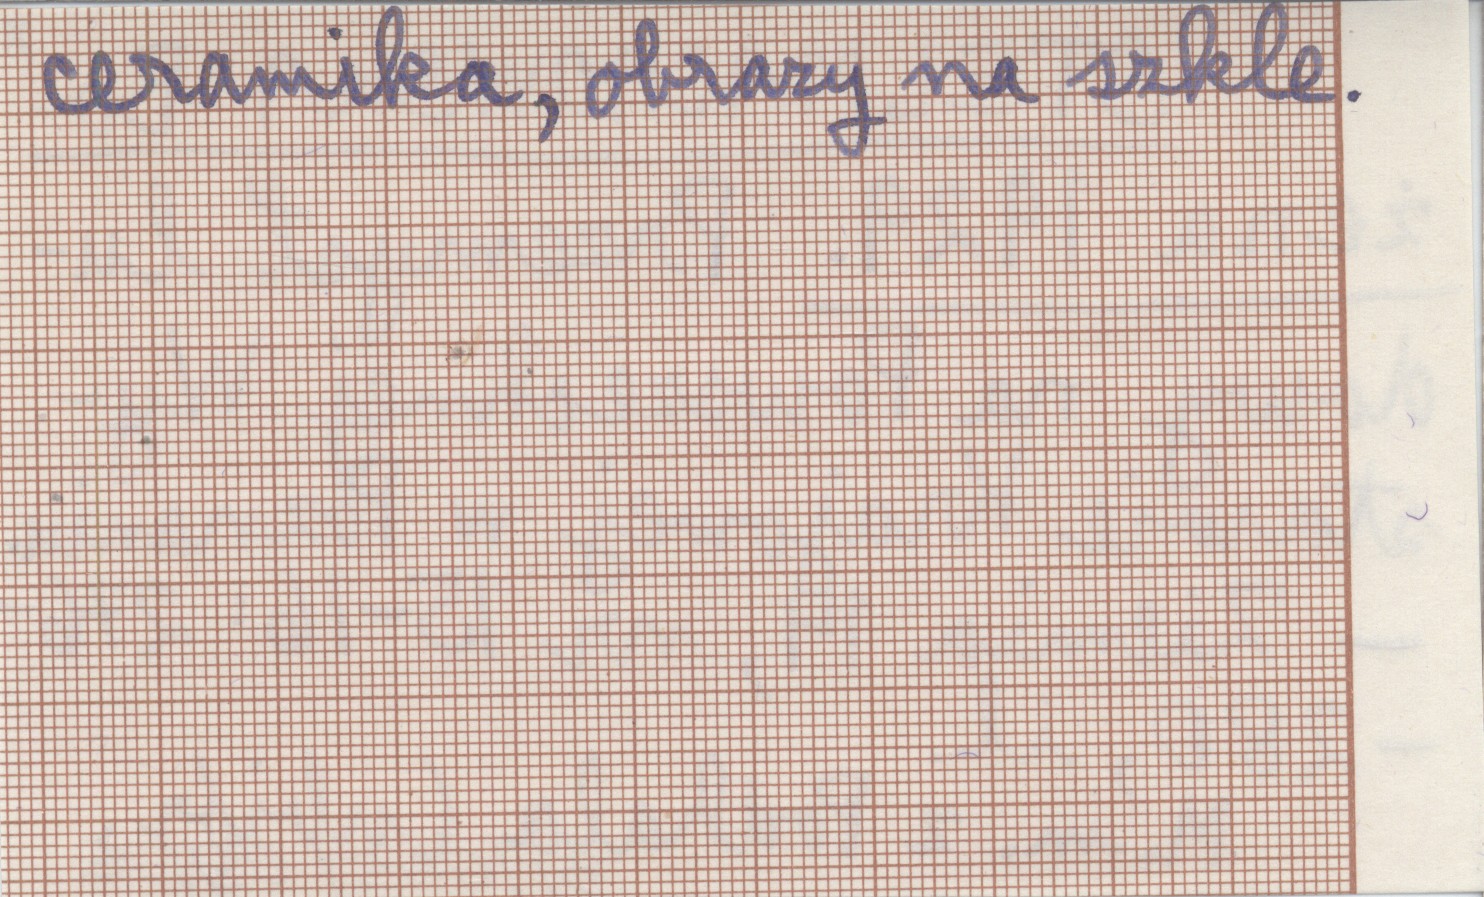 ceramika, obrazy na szkle.